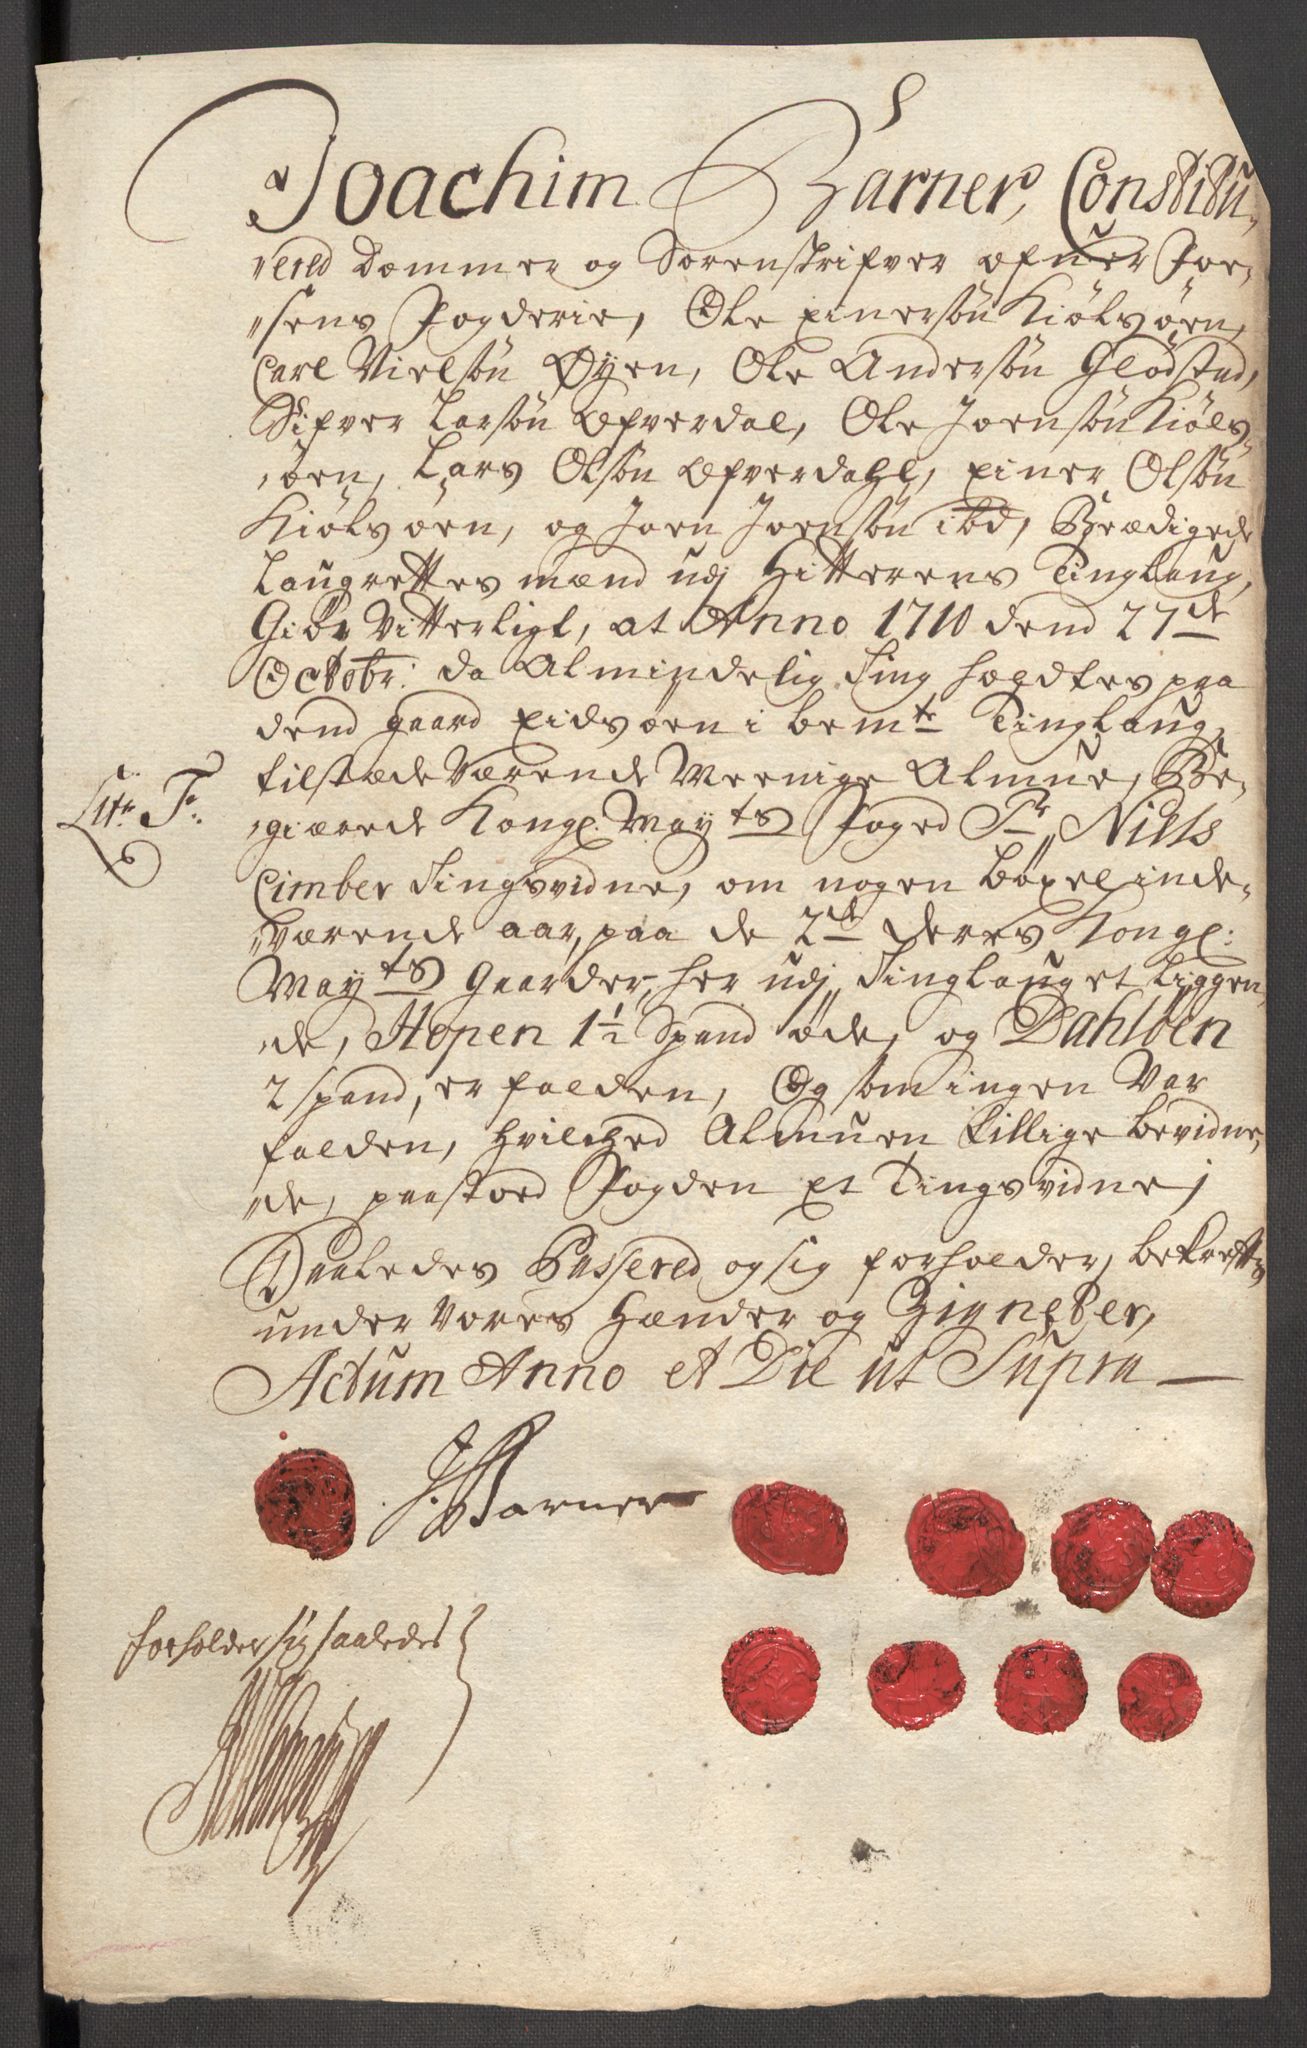 Joachim Barner, Constitu-
rered Dommer og Sorenskrifver ofuer Foe-
sens Fogderie, Ole Einersön Kiölsöen,
Carl Nielsön Øyen, Ole Andersön Glödstad,
Sifver Larsön Ofverdal, Ole Joensön Kiöls-
öen, Lars Olsön Ofverdahl, Einer Olsön
Kiölsöen, og Joen Joensön ibd, Beædigede
Laugrettes mænd udj Hitterens Tinglaug,
Giör Vitterligt, at Anno 1710 dend 27de
Octobr: da Almindelig Ting holdtes paa
dend gaard Eidsöen i bemte Tinglaug,
tilstædeværende Meenige Almue, Be-
Litr F:
giærede Kongl. Mayts Foged Sr Niels
Cimber Tingsvidne, om nogen böxel inde-
værende aar, paa de 2de deres Kongl:
Mayts Gaarder, her udj Tinglauget liggen-
de, Hopen 1½ Spand öde, og Dahlöen
2 spand, er falden, Og som ingen Var
falden, hvilched Almuen tillige bevidne-
de, paastoed Fogden Et Tingsvidne,
Saaledes Passered og sig forholder, bekrefftes
under vores Hænder og Zigneter,
Actum Anno et Die ut Supra
J. Barner
forholder sig saaledes